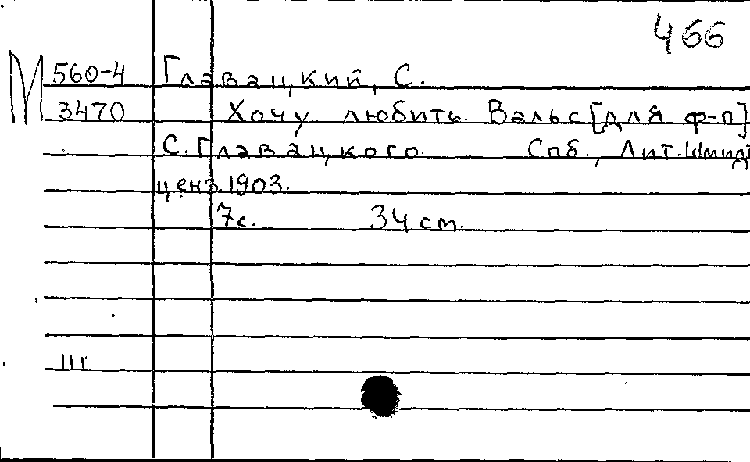 466
М 560-4 Главацкий, С.
3470 Хочу любить. Вальс [для ф-п]
С. Главацкого. Спб, Лит. Шмидт
ценз. 1903.
7с. 34 cm